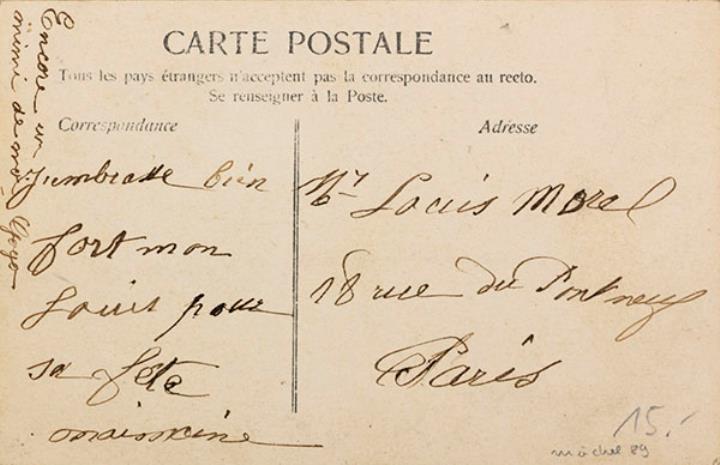 CARTE POSTALE
Tous les pays étrangers n'acceptent pas la correspondance au recto.
Se renseigner à la Poste.
Correspondance
Adresse
Encore un
mimi de moi
J'embrasse bien
fort mon
Louis pour
sa fête
Mr Louis Morel
18 rue du Pont neuf
Paris
15.-